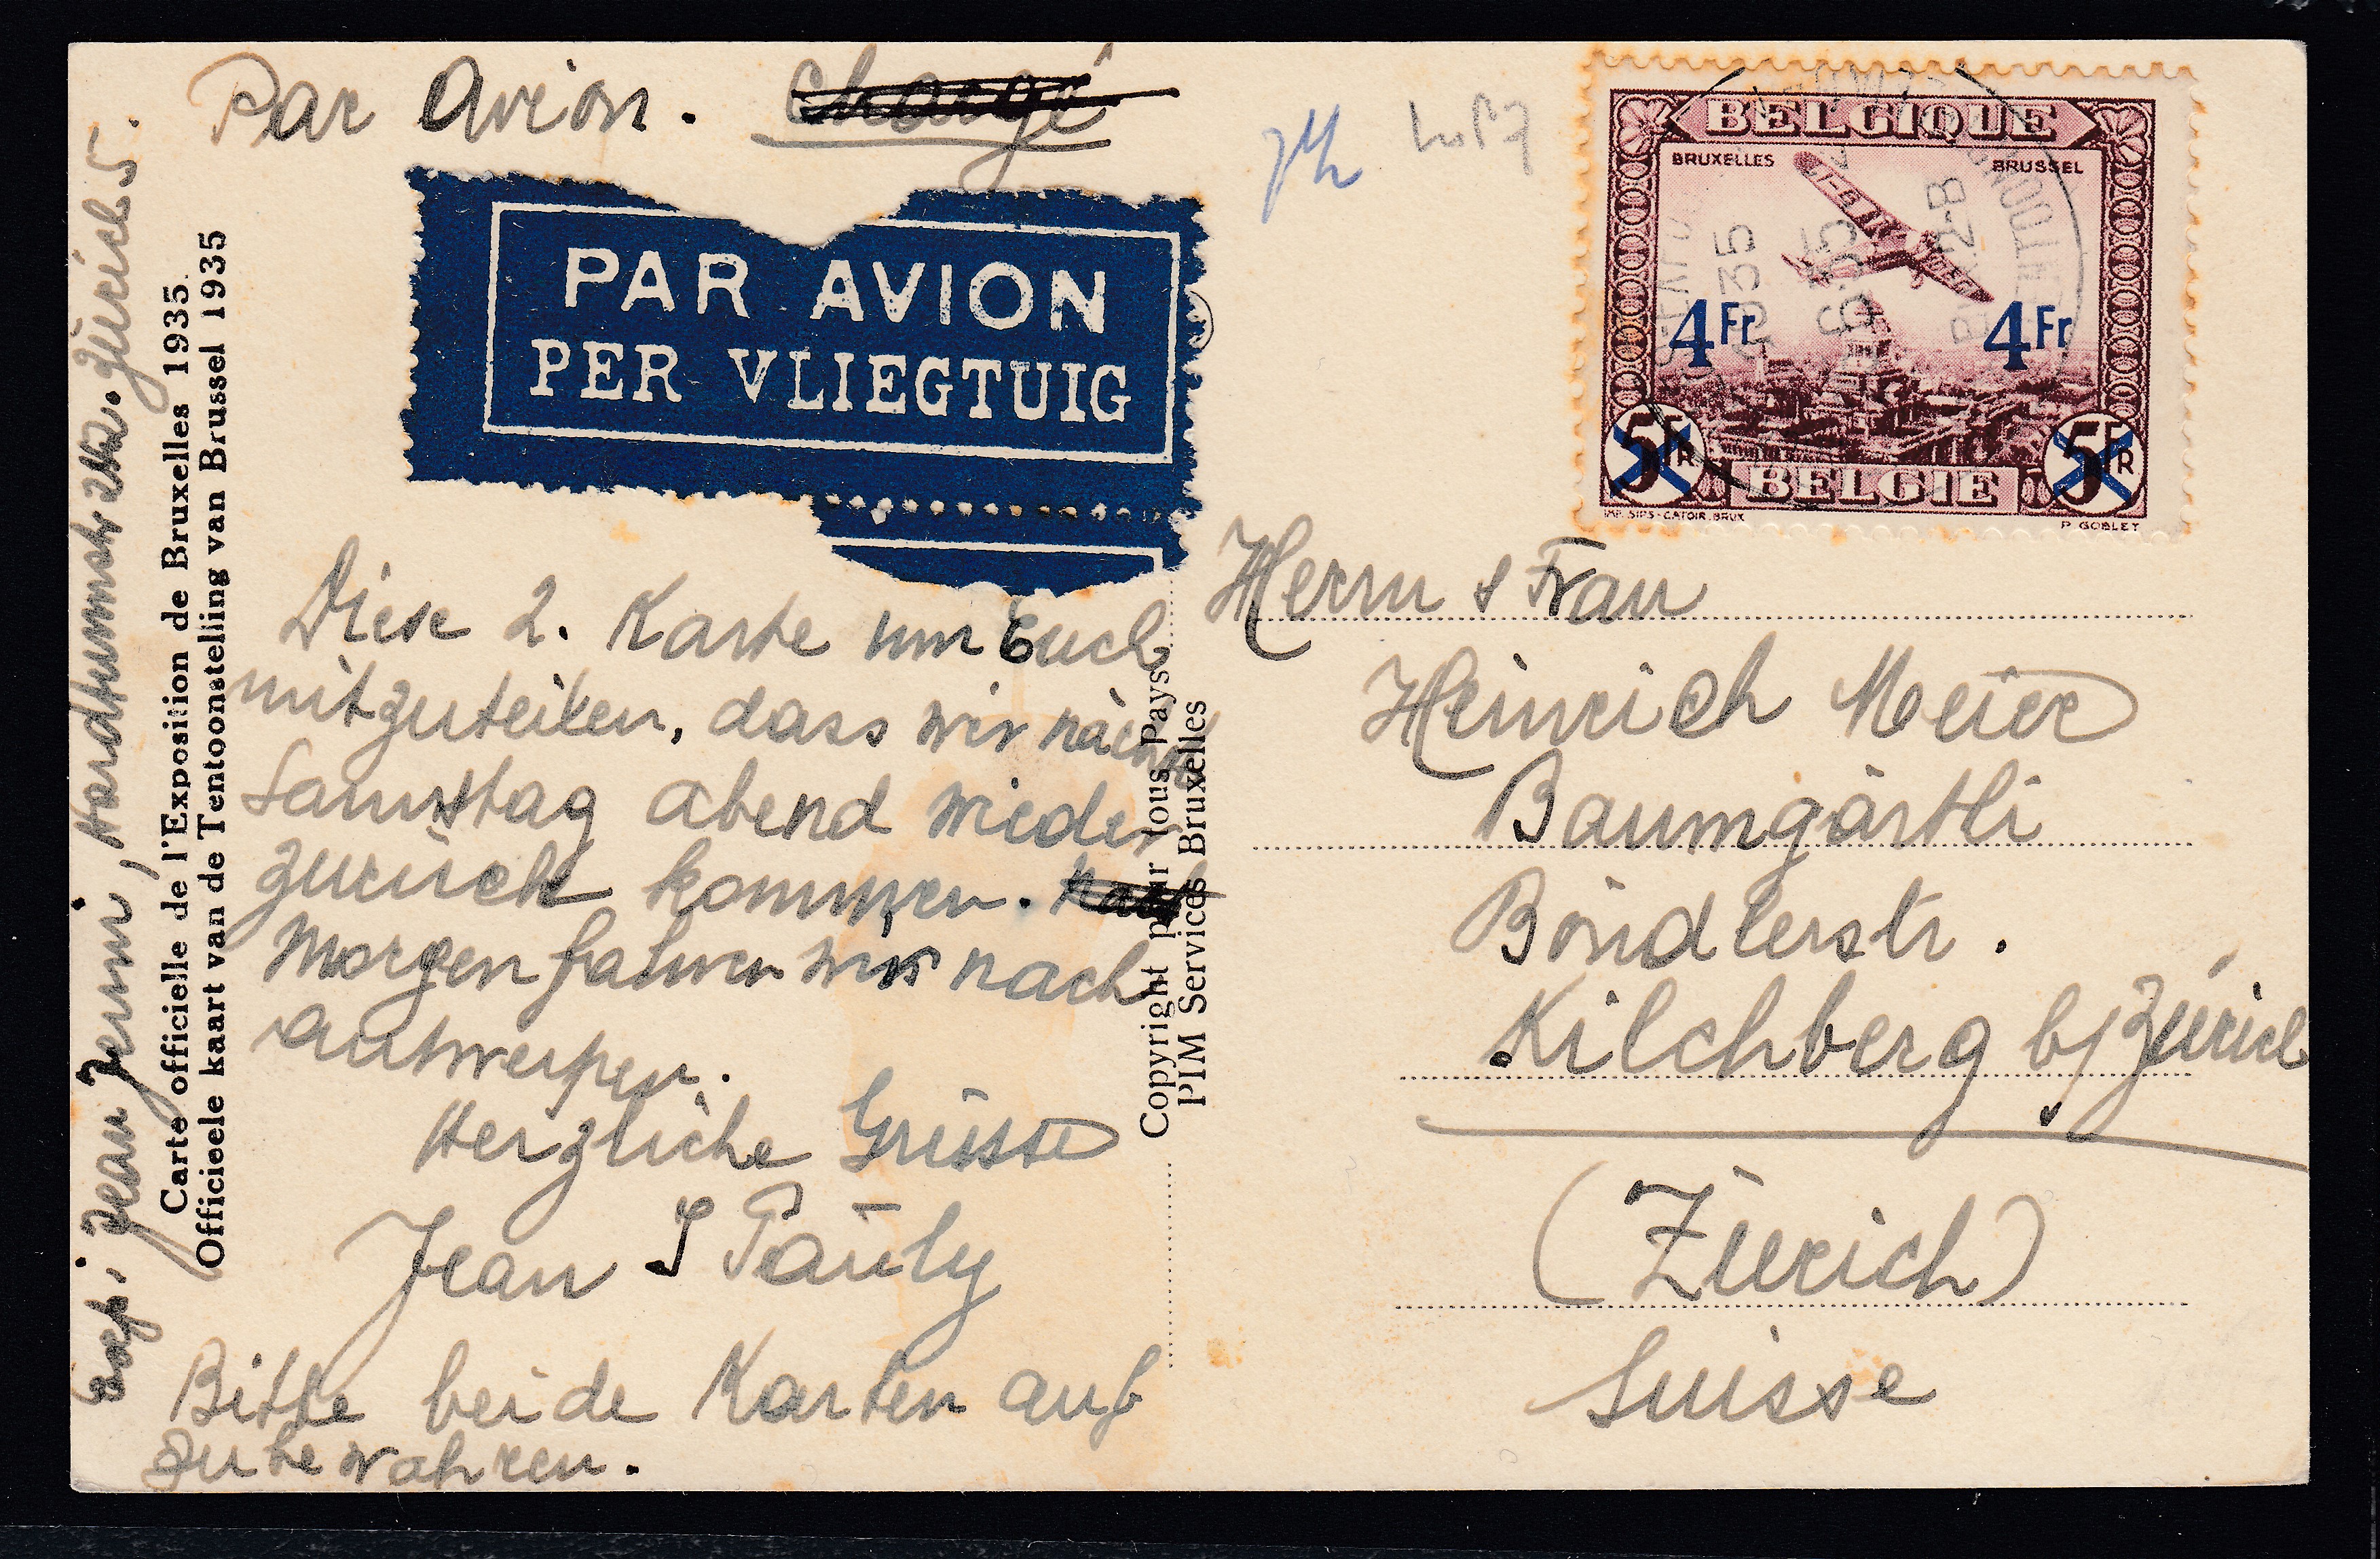 Par Avion. Chargé
PAR AVION
PER VLIEGTUIG
BELGIQUE
BRUXELLES BRUSSEL
4Fr 4Fr
5FR 5FR
BELGIE
IMP. SIPS-CATOIR. BRUX P. GOBLET
Diese 2. Karte um Euch
mitzuteilen, dass wir nächst
Samstag abend wieder
zurück kommen.
Morgen fahren wir nach
Antwerpen.
Herzliche Grüsse
Jean & Pauly
Bitte beide Karten auf
zu bewahren.
Herrn & Frau
Heinrich Meier
Baumgärtli
Böndlerstr.
Kilchberg b/Zürich
(Zürich)
Suisse
Copyright pour tous Pays
PIM Services Bruxelles
Carte officielle de l'Exposition de Bruxelles 1935.
Officieele kaart van de Tentoonstelling van Brussel 1935
Exp: Jean Jenni, Hardturmstr. Zürich 5.